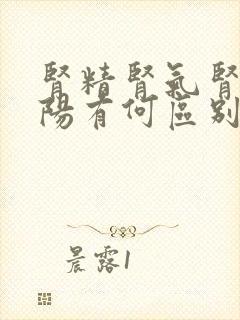 腎精腎氣腎
陽有何區別
晨露1